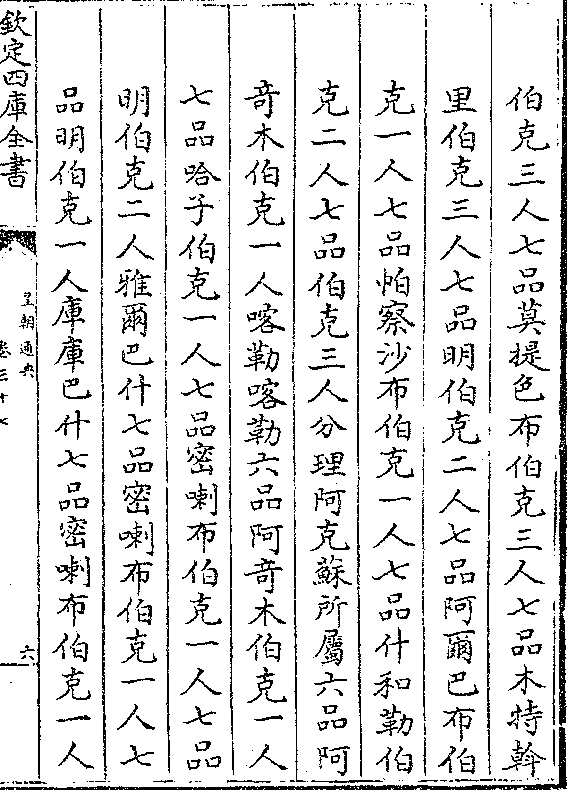 伯克三人七品莫提色布伯克三人七品木特斡
里伯克三人七品明伯克二人七品阿爾巴布伯
克一人七品帕察沙布伯克一人七品什和勒伯
克二人七品伯克三人分理阿克蘇所屬六品阿
奇木伯克一人喀勒喀勒六品阿奇木伯克一人
七品哈子伯克一人七品密喇布伯克一人七品
明伯克二人雅爾巴什七品密喇布伯克一人七
品明伯克一人庫庫巴什七品密喇布伯克一人
欽定四庫全書
皇朝通典
卷三十七
六